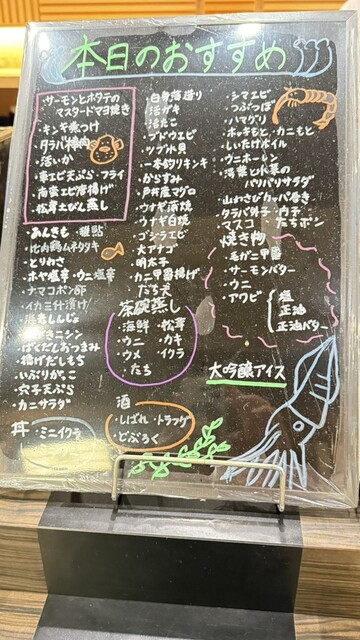 本日のおすすめ
サーモンとホタテの
マスタードマヨ焼き
・キンキ煮つけ
・タラバ
・活いか
・車エビ天ぷら・フライ
・南蛮エビ唐揚げ
・松茸土びん蒸し
・あんきも
・比内鶏ムネタタキ
・とりわさ
・ホヤ塩辛・ウニ塩辛
・ナマコポン酢
・イカ三升漬け
・ばくだんおつまみ
・揚げだしもち
・いぶりがっこ
・穴子天ぷら
・カニサラダ
丼・ミニイクラ
・活ガキ
・活たこ
・ブドウエビ
・ツブ水貝
・一本釣りキンキ
・からすみ
・戸井産マグロ
・ウナギ蒲焼
・ウナギ白焼
・ゴジラエビ
・大アナゴ
・明太子
・カニ甲羅揚げ
茶碗蒸し
・海鮮 ・松茸
・ウニ ・カキ
・ウメ ・イクラ
・たち
酒
・しばれ・トラップ
・どぶろく
・シマエビ
・つぶつぼ
・ハマグリ
・ホッキもと・カニもと
・いたけオイル
・ウニホーレン
・湯葉と水菜の
パリパリサラダ
・山わさびカッパ巻き
・タラバ外子・内子
・マスコ ・たちポン
焼き物
・毛ガニ甲羅
・サーモンバター
・ウニ
・アワビ
塩
正油
正油バター
大吟醸アイス